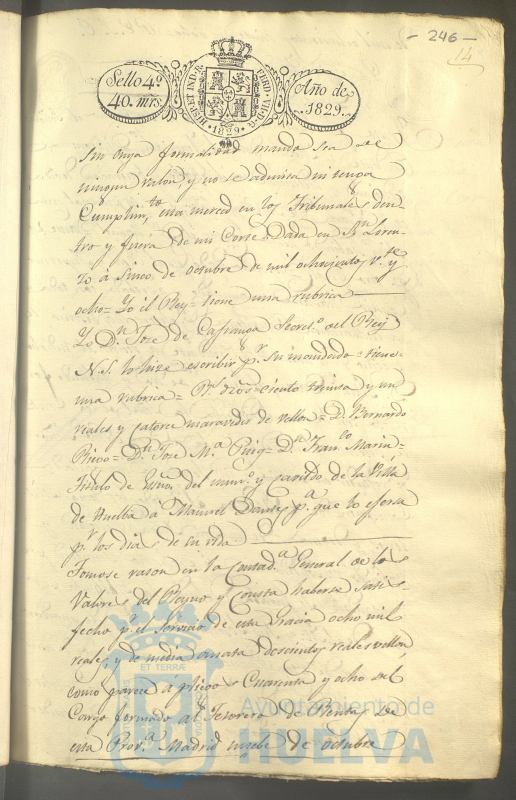 - 246 -
14
Sello 4º
40. mrs.
HISP. ET IND. R. FERD. VII. D. G.
1829
Año de
1829.
sin cuya formalidad mando sea de
ningun valor, y no se admita ni tenga
Cumplim.to esta merced en los Tribunales den-
tro y fuera de mi Corte. Dada en Sn Loren-
zo á cinco de octubre de mil ochocientos v.te y
ocho = Yo el Rey = tiene una rubrica
Yo Dn Jose de Cafranga Secret.o del Rey
N. S. lo hize escribir p.r su mandado = tiene
una rubrica = Ds ciento treinta y un
reales y catorce maravedis de vellon = D. Bernardo
Riego = Dn Jose M.a Puig = Dn Fran.co Marin =
Titulo de Esno del num.o y partido de la Villa
de Huelba á Manuel p.a que lo ejerza
p.r los dias de su vida
Tomose razon en la Contad.a General de los
Valores del Reyno y Consta haberse satis-
fecho p.r el servicio de esta Gracia ocho mil
reales, y de media annata doscientos reales vellon
como parece á pliego Cuarenta y ocho del
Cargo formado al Tesorero de Rentas de
esta Prov.a Madrid nuebe de octubre
ET TERRÆ
Ayuntamiento de
HUELVA